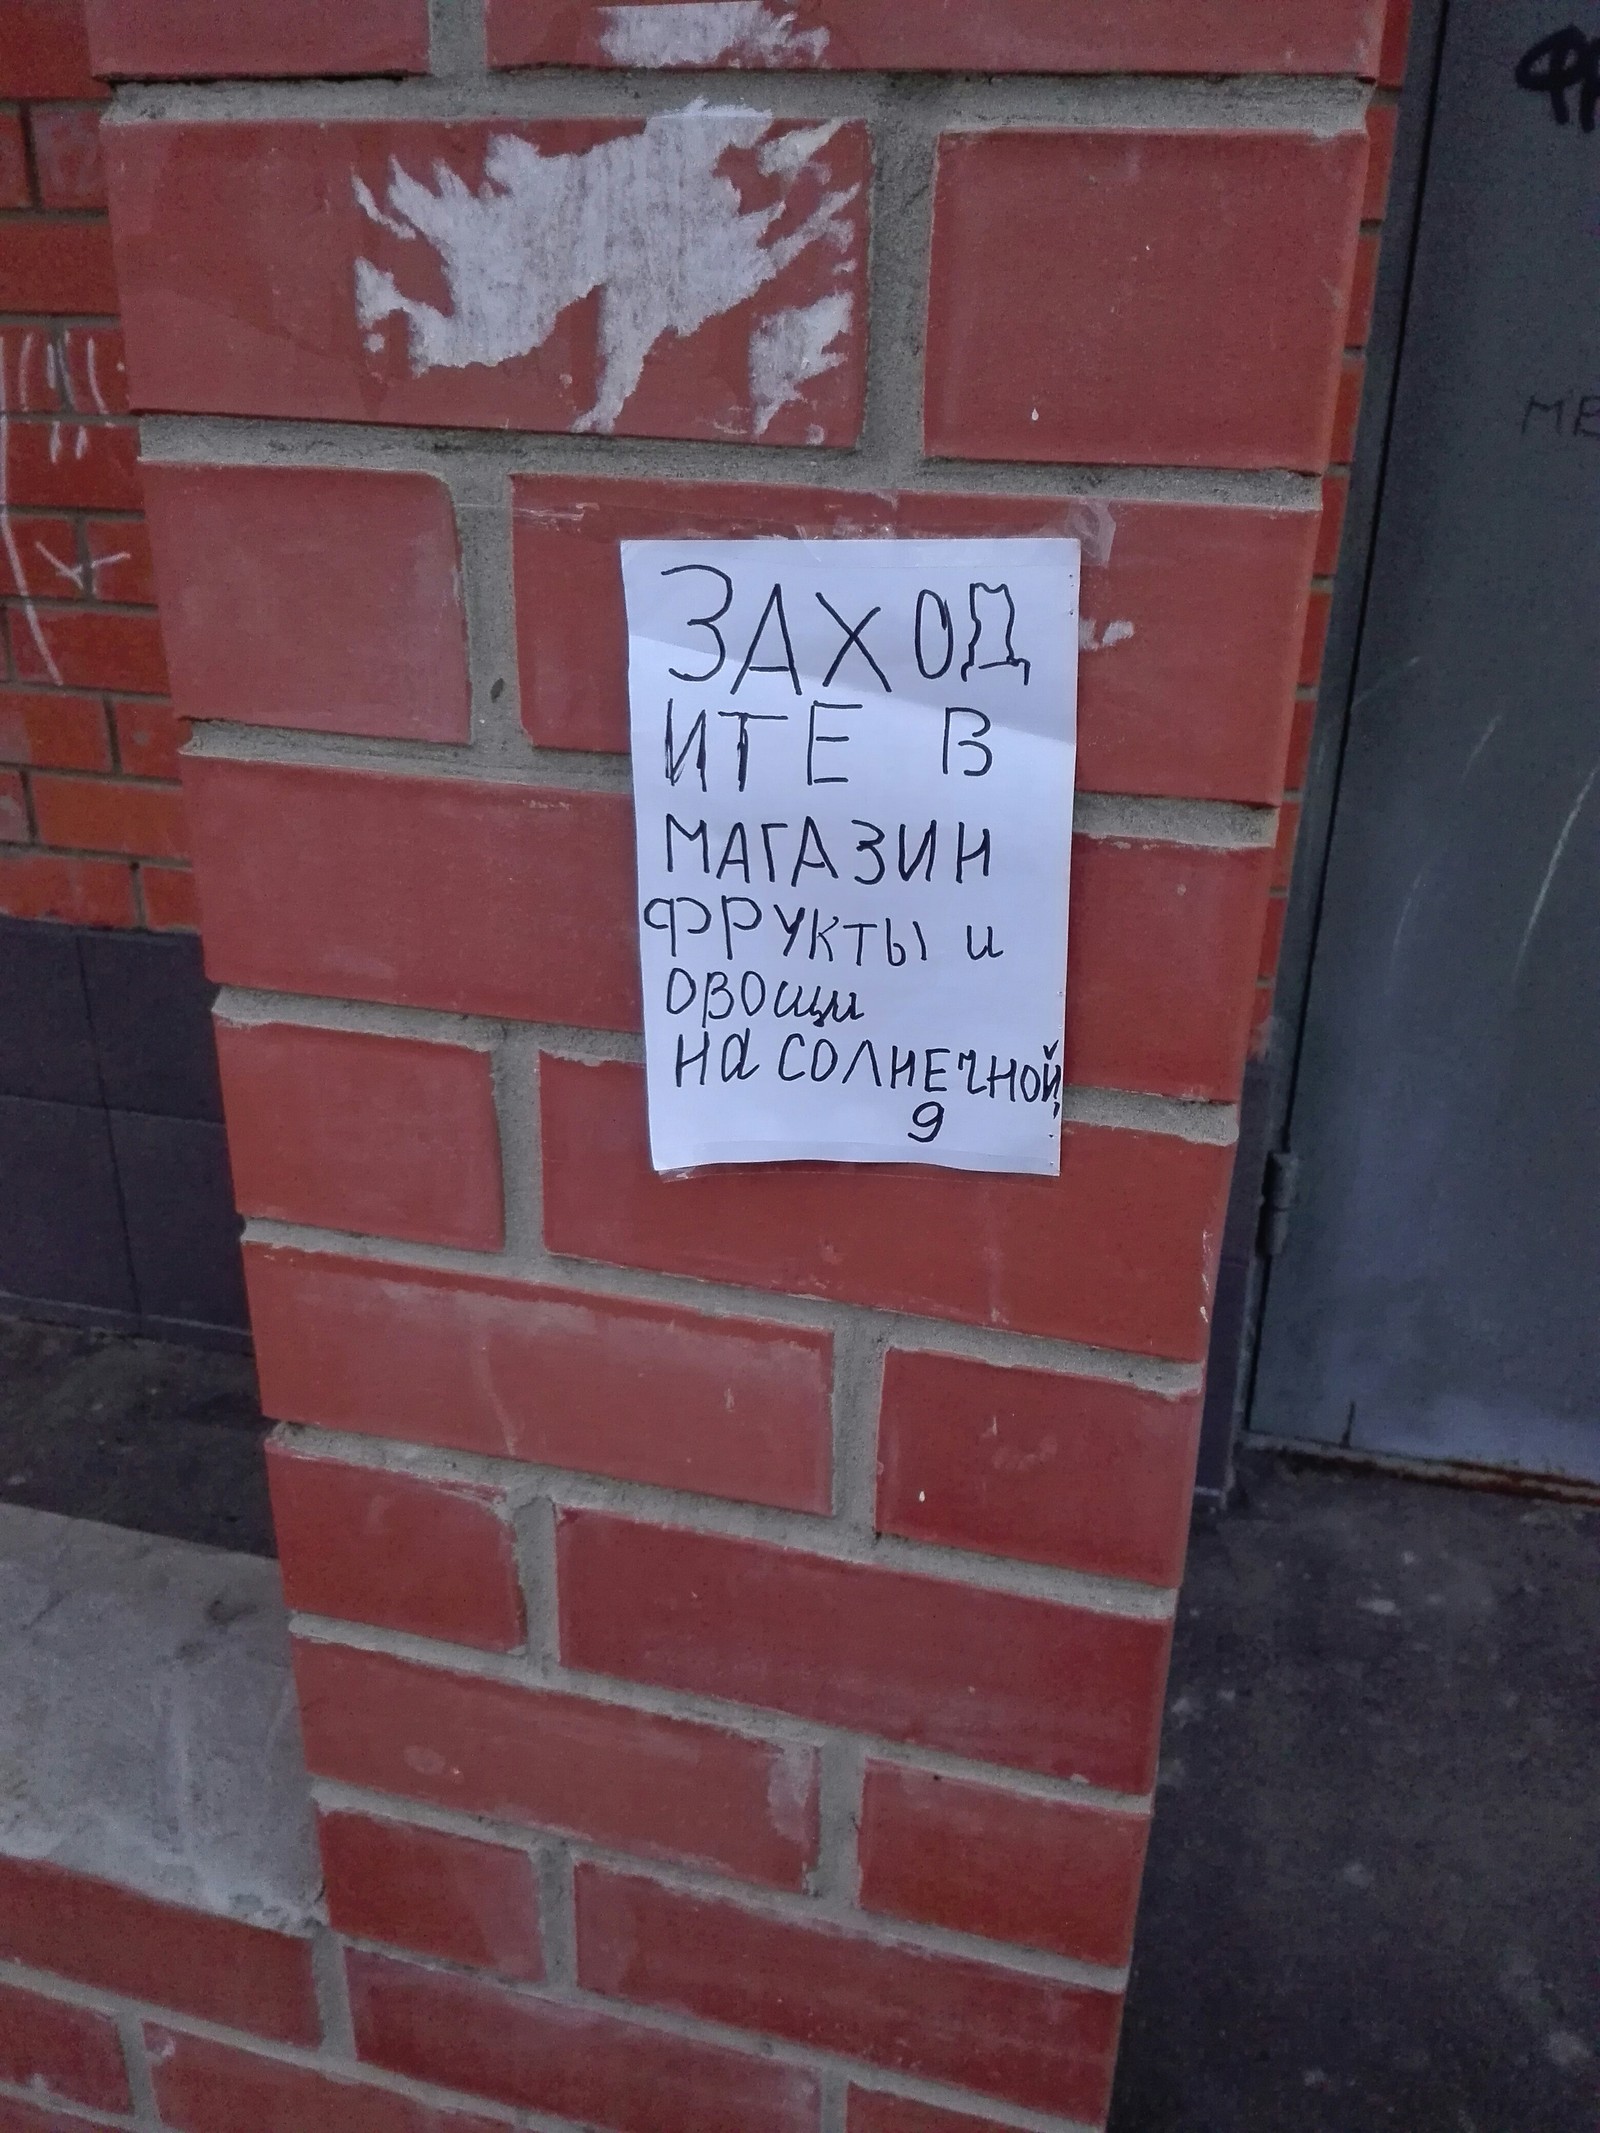 ЗАХОД
ИТЕ В
МАГАЗИН
ФРУКТЫ и
ОВОщи
На СОЛНЕЧНОЙ,
9